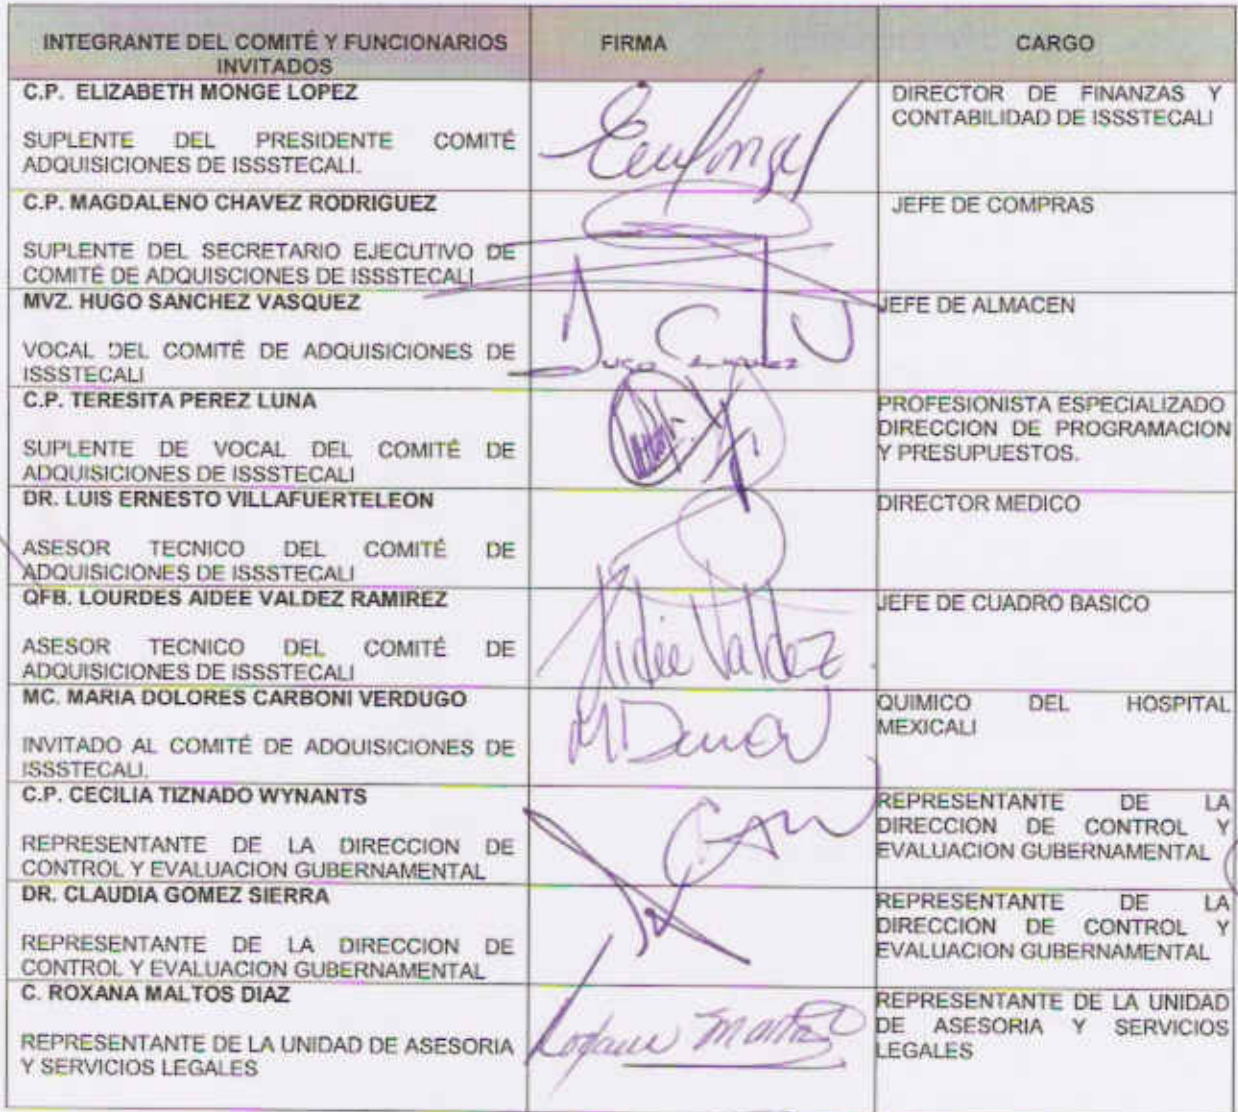 INTEGRANTE DEL COMITÉ Y FUNCIONARIOS
INVITADOS
FIRMA
CARGO
C.P. ELIZABETH MONGE LOPEZ
SUPLENTE DEL PRESIDENTE COMITÉ
ADQUISICIONES DE ISSSTECALI.
DIRECTOR DE FINANZAS Y
CONTABILIDAD DE ISSSTECALI
C.P. MAGDALENO CHAVEZ RODRIGUEZ
SUPLENTE DEL SECRETARIO EJECUTIVO DE
COMITÉ DE ADQUISCIONES DE ISSSTECALI
JEFE DE COMPRAS
MVZ. HUGO SANCHEZ VASQUEZ
VOCAL DEL COMITÉ DE ADQUISICIONES DE
ISSSTECALI
JEFE DE ALMACEN
C.P. TERESITA PEREZ LUNA
SUPLENTE DE VOCAL DEL COMITÉ DE
ADQUISICIONES DE ISSSTECALI
PROFESIONISTA ESPECIALIZADO
DIRECCION DE PROGRAMACION
Y PRESUPUESTOS.
DR. LUIS ERNESTO VILLAFUERTELEON
ASESOR TECNICO DEL COMITÉ DE
ADQUISICIONES DE ISSSTECALI
DIRECTOR MEDICO
QFB. LOURDES AIDEE VALDEZ RAMIREZ
ASESOR TECNICO DEL COMITÉ DE
ADQUISICIONES DE ISSSTECALI
Aidée Valdez
JEFE DE CUADRO BASICO
MC. MARIA DOLORES CARBONI VERDUGO
INVITADO AL COMITÉ DE ADQUISICIONES DE
ISSSTECALI.
QUIMICO DEL HOSPITAL
MEXICALI
C.P. CECILIA TIZNADO WYNANTS
REPRESENTANTE DE LA DIRECCION DE
CONTROL Y EVALUACION GUBERNAMENTAL
REPRESENTANTE DE LA
DIRECCION DE CONTROL Y
EVALUACION GUBERNAMENTAL
DR. CLAUDIA GOMEZ SIERRA
REPRESENTANTE DE LA DIRECCION DE
CONTROL Y EVALUACION GUBERNAMENTAL
REPRESENTANTE DE LA
DIRECCION DE CONTROL Y
EVALUACION GUBERNAMENTAL
C. ROXANA MALTOS DIAZ
REPRESENTANTE DE LA UNIDAD DE ASESORIA
Y SERVICIOS LEGALES
REPRESENTANTE DE LA UNIDAD
DE ASESORIA Y SERVICIOS
LEGALES